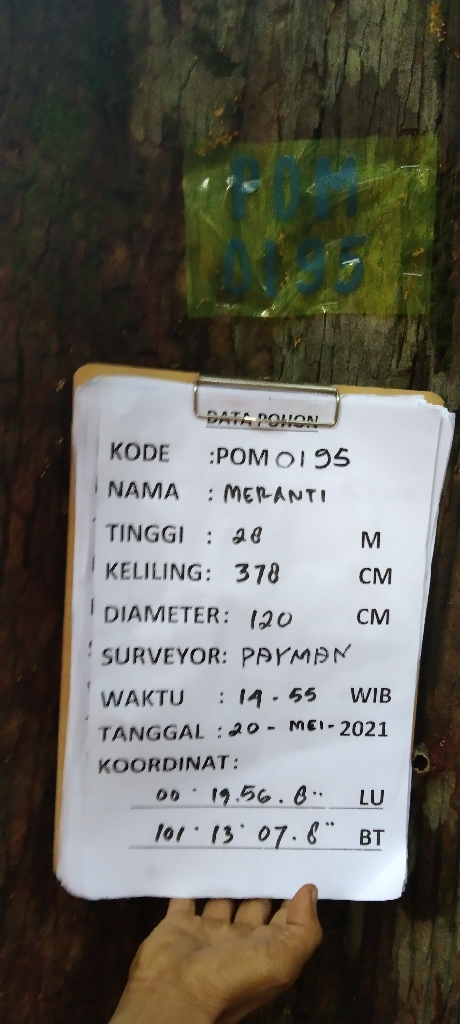 POM
0195
DATA POHON
KODE :POM 0195
NAMA : MERANTI
TINGGI : 28 M
KELILING: 378 CM
DIAMETER: 120 CM
SURVEYOR: PAYMAN
WAKTU : 14 - 55 WIB
TANGGAL : 20 - MEI - 2021
KOORDINAT:
00 ° 19. 56. 8 " LU
101 ° 13 ' 07. 8 " BT